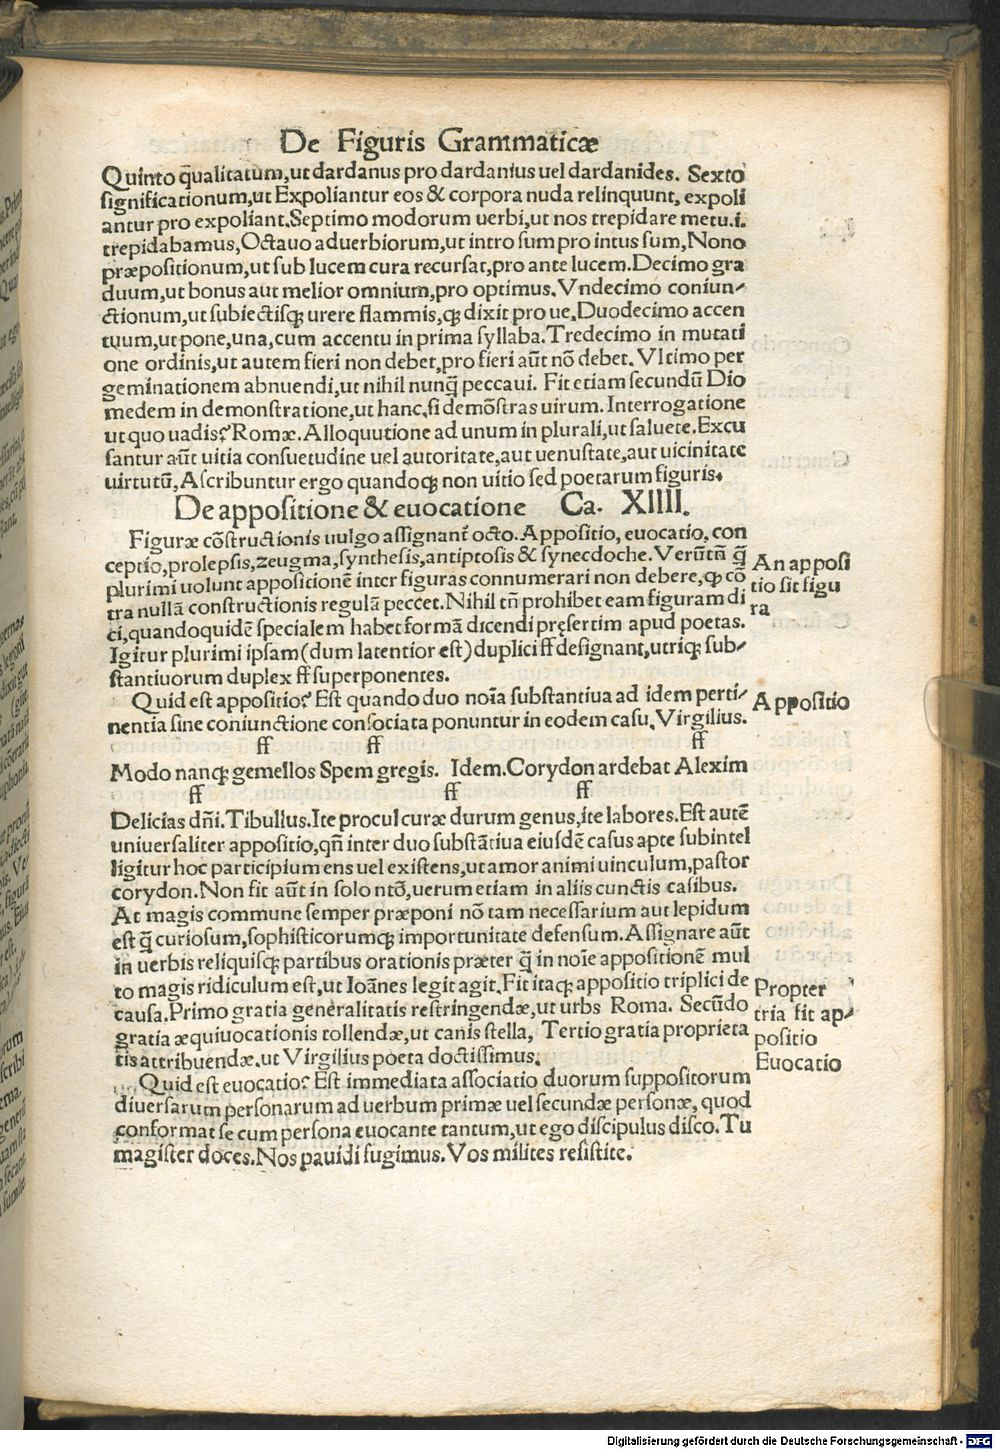 De Figuris Grammaticæ
Quinto q̄ualitatum,ut dardanus pro dardanius uel dardanides. Sexto
significationum,ut Expoliantur eos & corpora nuda relinquunt, expoli
antur pro expoliant.Septimo modorum uerbi,ut nos trepidare metu.i.
trepidabamus,Octauo aduerbiorum,ut intro sum pro intus sum,Nono
præpositionum,ut sub lucem cura recursat,pro ante lucem.Decimo gra
duum,ut bonus aut melior omnium,pro optimus.Vndecimo coniun-
ctionum,ut subiectisq; urere flammis,q; dixit pro ue.Duodecimo accen
tuum,ut pone,una,cum accentu in prima syllaba.Tredecimo in mutati
one ordinis,ut autem fieri non debet,pro fieri aūt nō debet.Vltimo per
geminationem abnuendi,ut nihil nunq̄ peccaui. Fit etiam secundū Dio
medem in demonstratione,ut hanc,si demōstras uirum.Interrogatione
ut quo uadis?Romæ.Alloquutione ad unum in plurali,ut saluete.Excu
santur aūt uitia consuetudine uel autoritate,aut uenustate,aut uicinitate
uirtutū,Ascribuntur ergo quandoq; non uitio sed poetarum figuris.
De appositione & euocatione Ca. XIIII.
Figuræ cōstructionis uulgo assignant̄ octo.Appositio, euocatio, con
ceptio,prolepsis,zeugma,synthesis,antiptosis & synecdoche.Verūtn̄ q̄
An apposi
plurimi uolunt appositionē inter figuras connumerari non debere,ꝙ cō
tio sit figu
tra nullā constructionis regulā peccet.Nihil tn̄ prohibet eam figuram di
ra
ci,quandoquidē specialem habet formā dicendi pręsertim apud poetas.
Igitur plurimi ipsam(dum latentior est)duplici ff designant,utriq; sub-
stantiuorum duplex ff superponentes.
Quid est appositio? Est quando duo noīa substantiua ad idem perti-
Appositio
nentia sine coniunctione consociata ponuntur in eodem casu.Virgilius.
ff ff ff
Modo nanq; gemellos Spem gregis. Idem.Corydon ardebat Alexim
ff ff ff
Delicias dn̄i.Tibullus.Ite procul curæ durum genus,ite labores.Est autē
uniuersaliter appositio,qn̄ inter duo substātiua eiusdē casus apte subintel
ligitur hoc participium ens uel existens,ut amor animi uinculum,pastor
corydon.Non fit aūt in solo ntō,uerum etiam in aliis cunctis casibus.
At magis commune semper præponi nō tam necessarium aut lepidum
est q̄ curiosum,sophisticorumq; importunitate defensum.Assignare aūt
in uerbis reliquisq; partibus orationis præter q̄ in noīe appositionē mul
to magis ridiculum est,ut Ioānes legit agit.Fit itaq; appositio triplici de
Propter
causa.Primo gratia generalitatis restringendæ,ut urbs Roma. Secūdo
tria fit ap-
gratia æquiuocationis tollendæ,ut canis stella, Tertio gratia proprieta
positio
tis attribuendæ.ut Virgilius poeta doctissimus.
Euocatio
Quid est euocatio? Est immediata associatio duorum suppositorum
diuersarum personarum ad uerbum primæ uel secundæ personæ, quod
conformat se cum persona euocante tantum,ut ego discipulus disco.Tu
magister doces.Nos pauidi fugimus.Vos milites resistite.
Digitalisierung gefördert durch die Deutsche Forschungsgemeinschaft - DFG